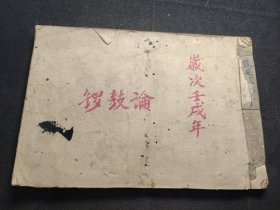 歲次壬戌年
鑼鼓論